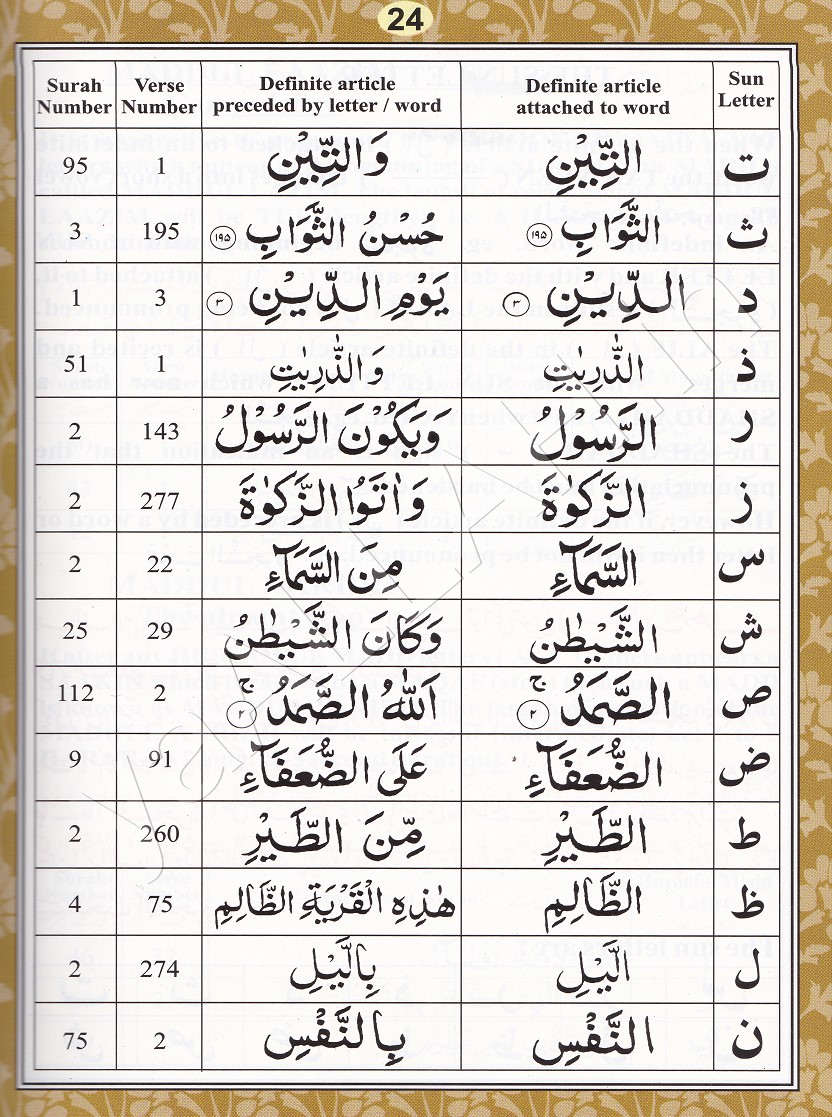 24
Surah Number	Verse Number	Definite article preceded by letter / word	Definite article attached to word	Sun Letter
95	1	وَالتِّيْنِ	التِّيْنِ	ت
3	195	حُسْنُ الثَّوَابِ ١٩٥	الثَّوَابِ ١٩٥	ث
1	3	يَوْمِ الدِّيْنِ ٣	الدِّيْنِ ٣	د
51	1	وَالذّٰرِيٰتِ	الذّٰرِيٰتِ	ذ
2	143	وَيَكُوْنَ الرَّسُوْلُ	الرَّسُوْلُ	ر
2	277	وَاٰتَوُا الزَّكٰوةَ	الزَّكٰوةَ	ر
2	22	مِنَ السَّمَآءِ	السَّمَآءِ	س
25	29	وَكَانَ الشَّيْطٰنُ	الشَّيْطٰنُ	ش
112	2	اَللّٰهُ الصَّمَدُ ۚ ٢	الصَّمَدُ ۚ ٢	ص
9	91	عَلَى الضُّعَفَآءِ	الضُّعَفَآءِ	ض
2	260	مِّنَ الطَّيْرِ	الطَّيْرِ	ط
4	75	هٰذِهِ الْقَرْيَةِ الظَّالِمِ	الظَّالِمِ	ظ
2	274	بِالَّيْلِ	الَّيْلِ	ل
75	2	بِالنَّفْسِ	النَّفْسِ	ن